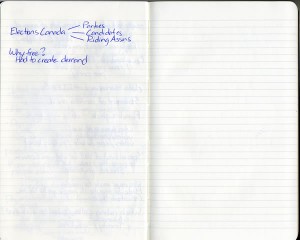 Parties
Elections Canada Candidates
Riding Assns
Why free?
Had to create demand